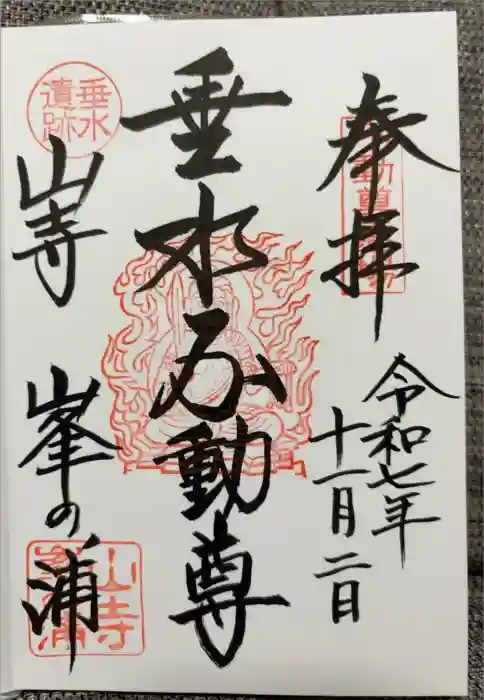 奉拝
令和七年
十一月二日
垂水不動尊
山寺 峯の浦
垂水
遺跡
山寺